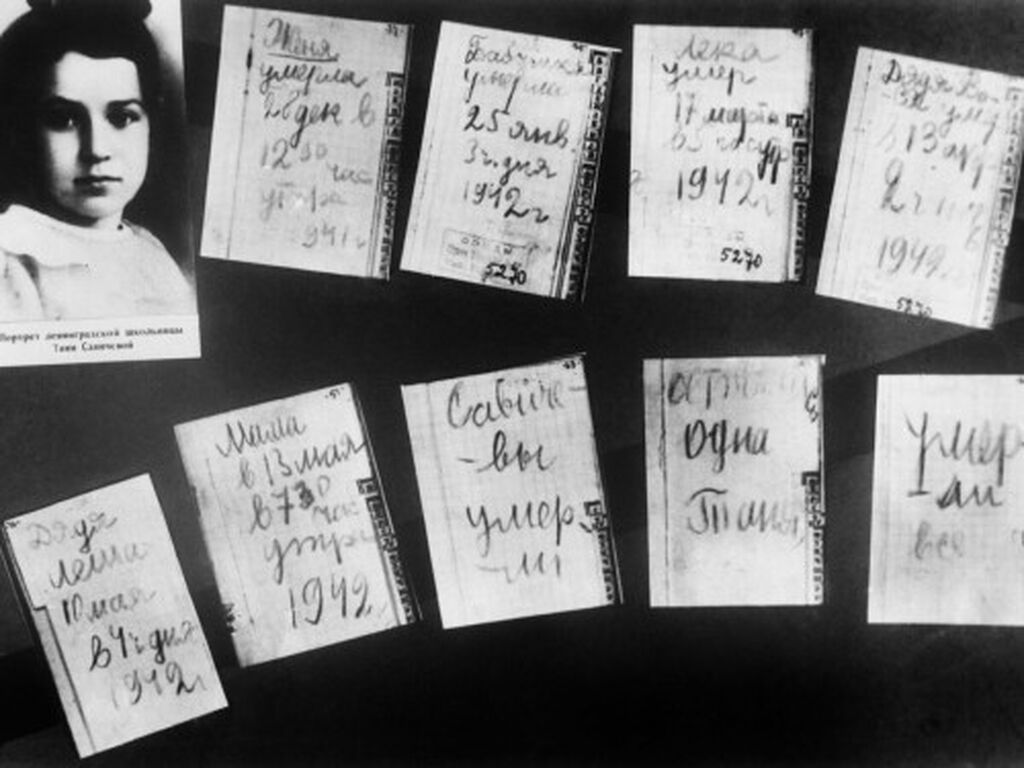 Портрет ленинградской школьницы
Тани Савичевой
Женя
умерла
28 дек в
12 30
час
утра
1941 г
Бабушка
умерла
25 янв.
3 ч. дня
1942 г
5270
Лека
умер
17 марта
в 5 час ут
1942 г
5270
Дядя Ва-
-ся ум
в 13 апр
2 ч
1942
5270
Дядя
Леша
10 мая
в 4 ч дня
1942 г
Мама
в 13 мая
в 7 30
час
утра
1942 г
Савиче-
-вы
умер
-ли
Осталась
одна
Таня
умер
-ли
все